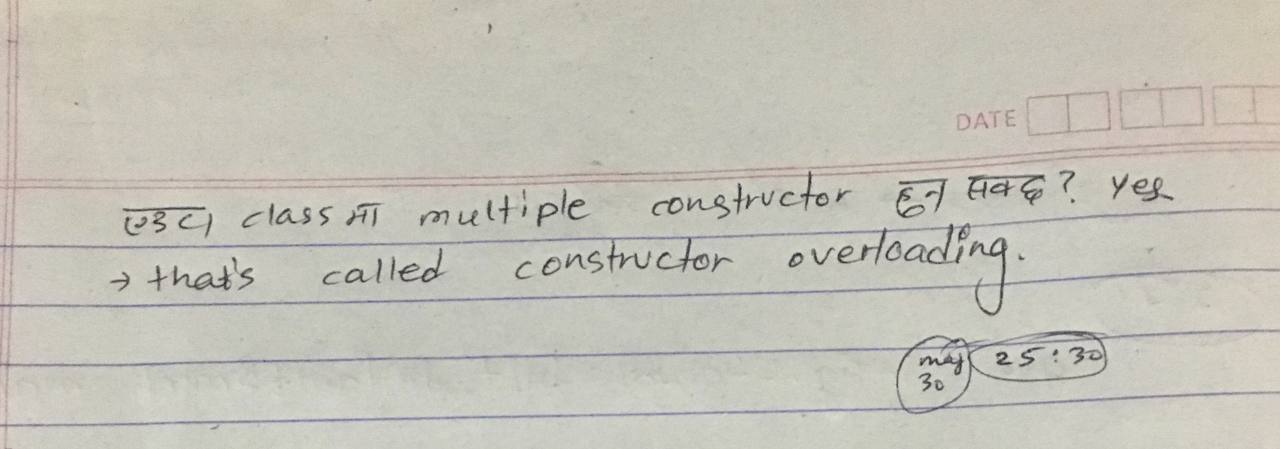 DATE
एउटा class मा multiple constructor हुन सक्छ? yes
→ that's called constructor overloading.
maj 25:30
30